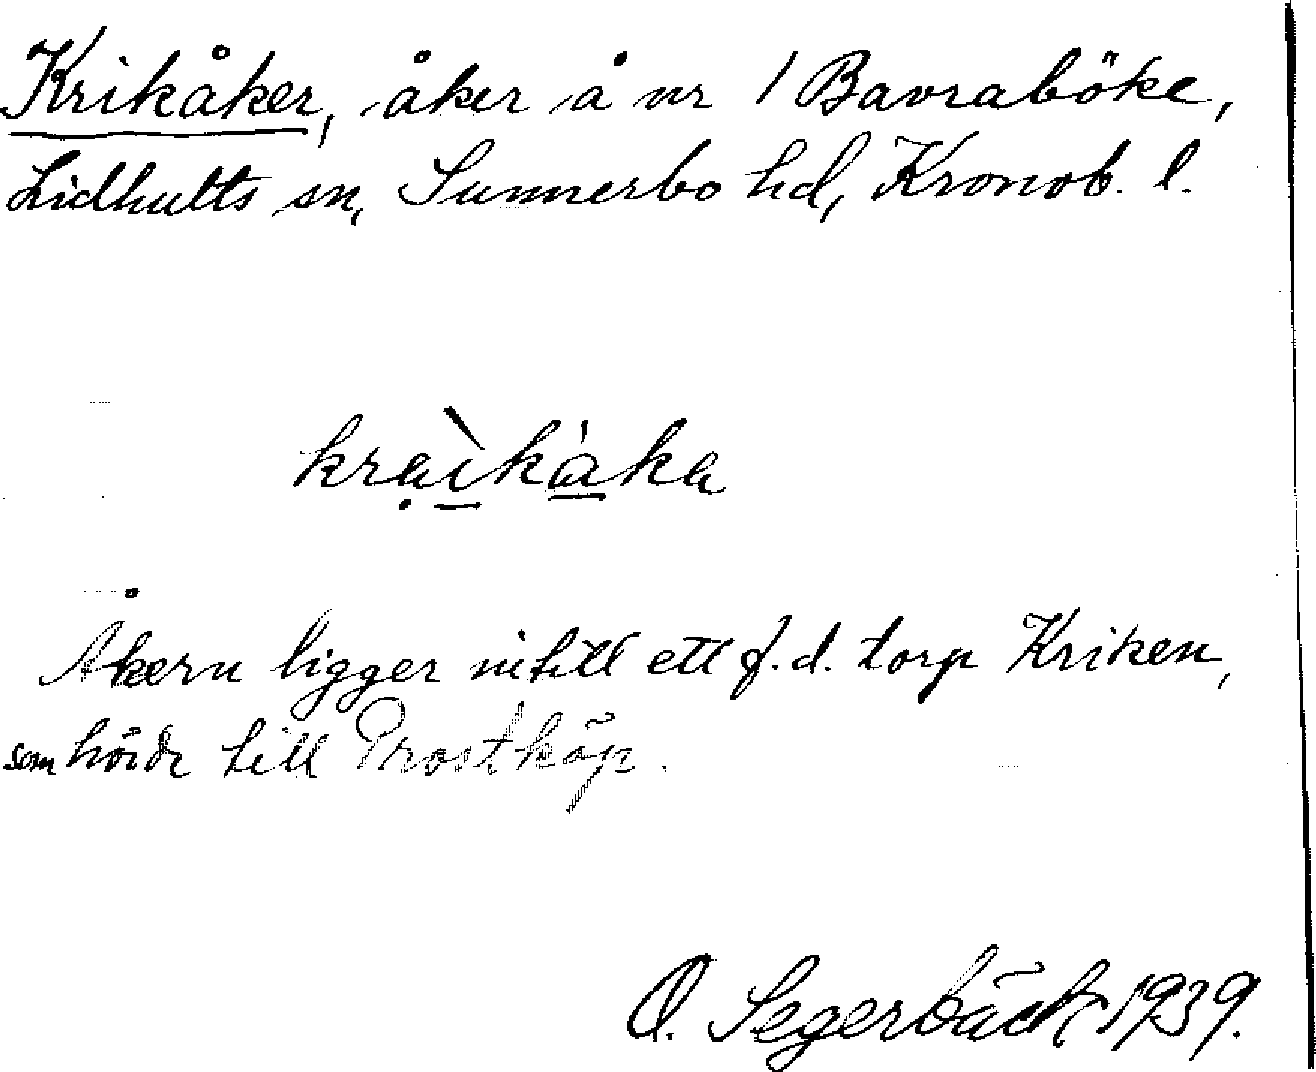 Krikåker, åker å nr 1 Bavraböke,
Lidhults sn, Sunnerbo hd, Kronob. l.
kra̤ìkàka
Åkern ligger intill ett f.d. torp Kriken,
som hörde till Prostköp.
O. Segerbäck 1939.